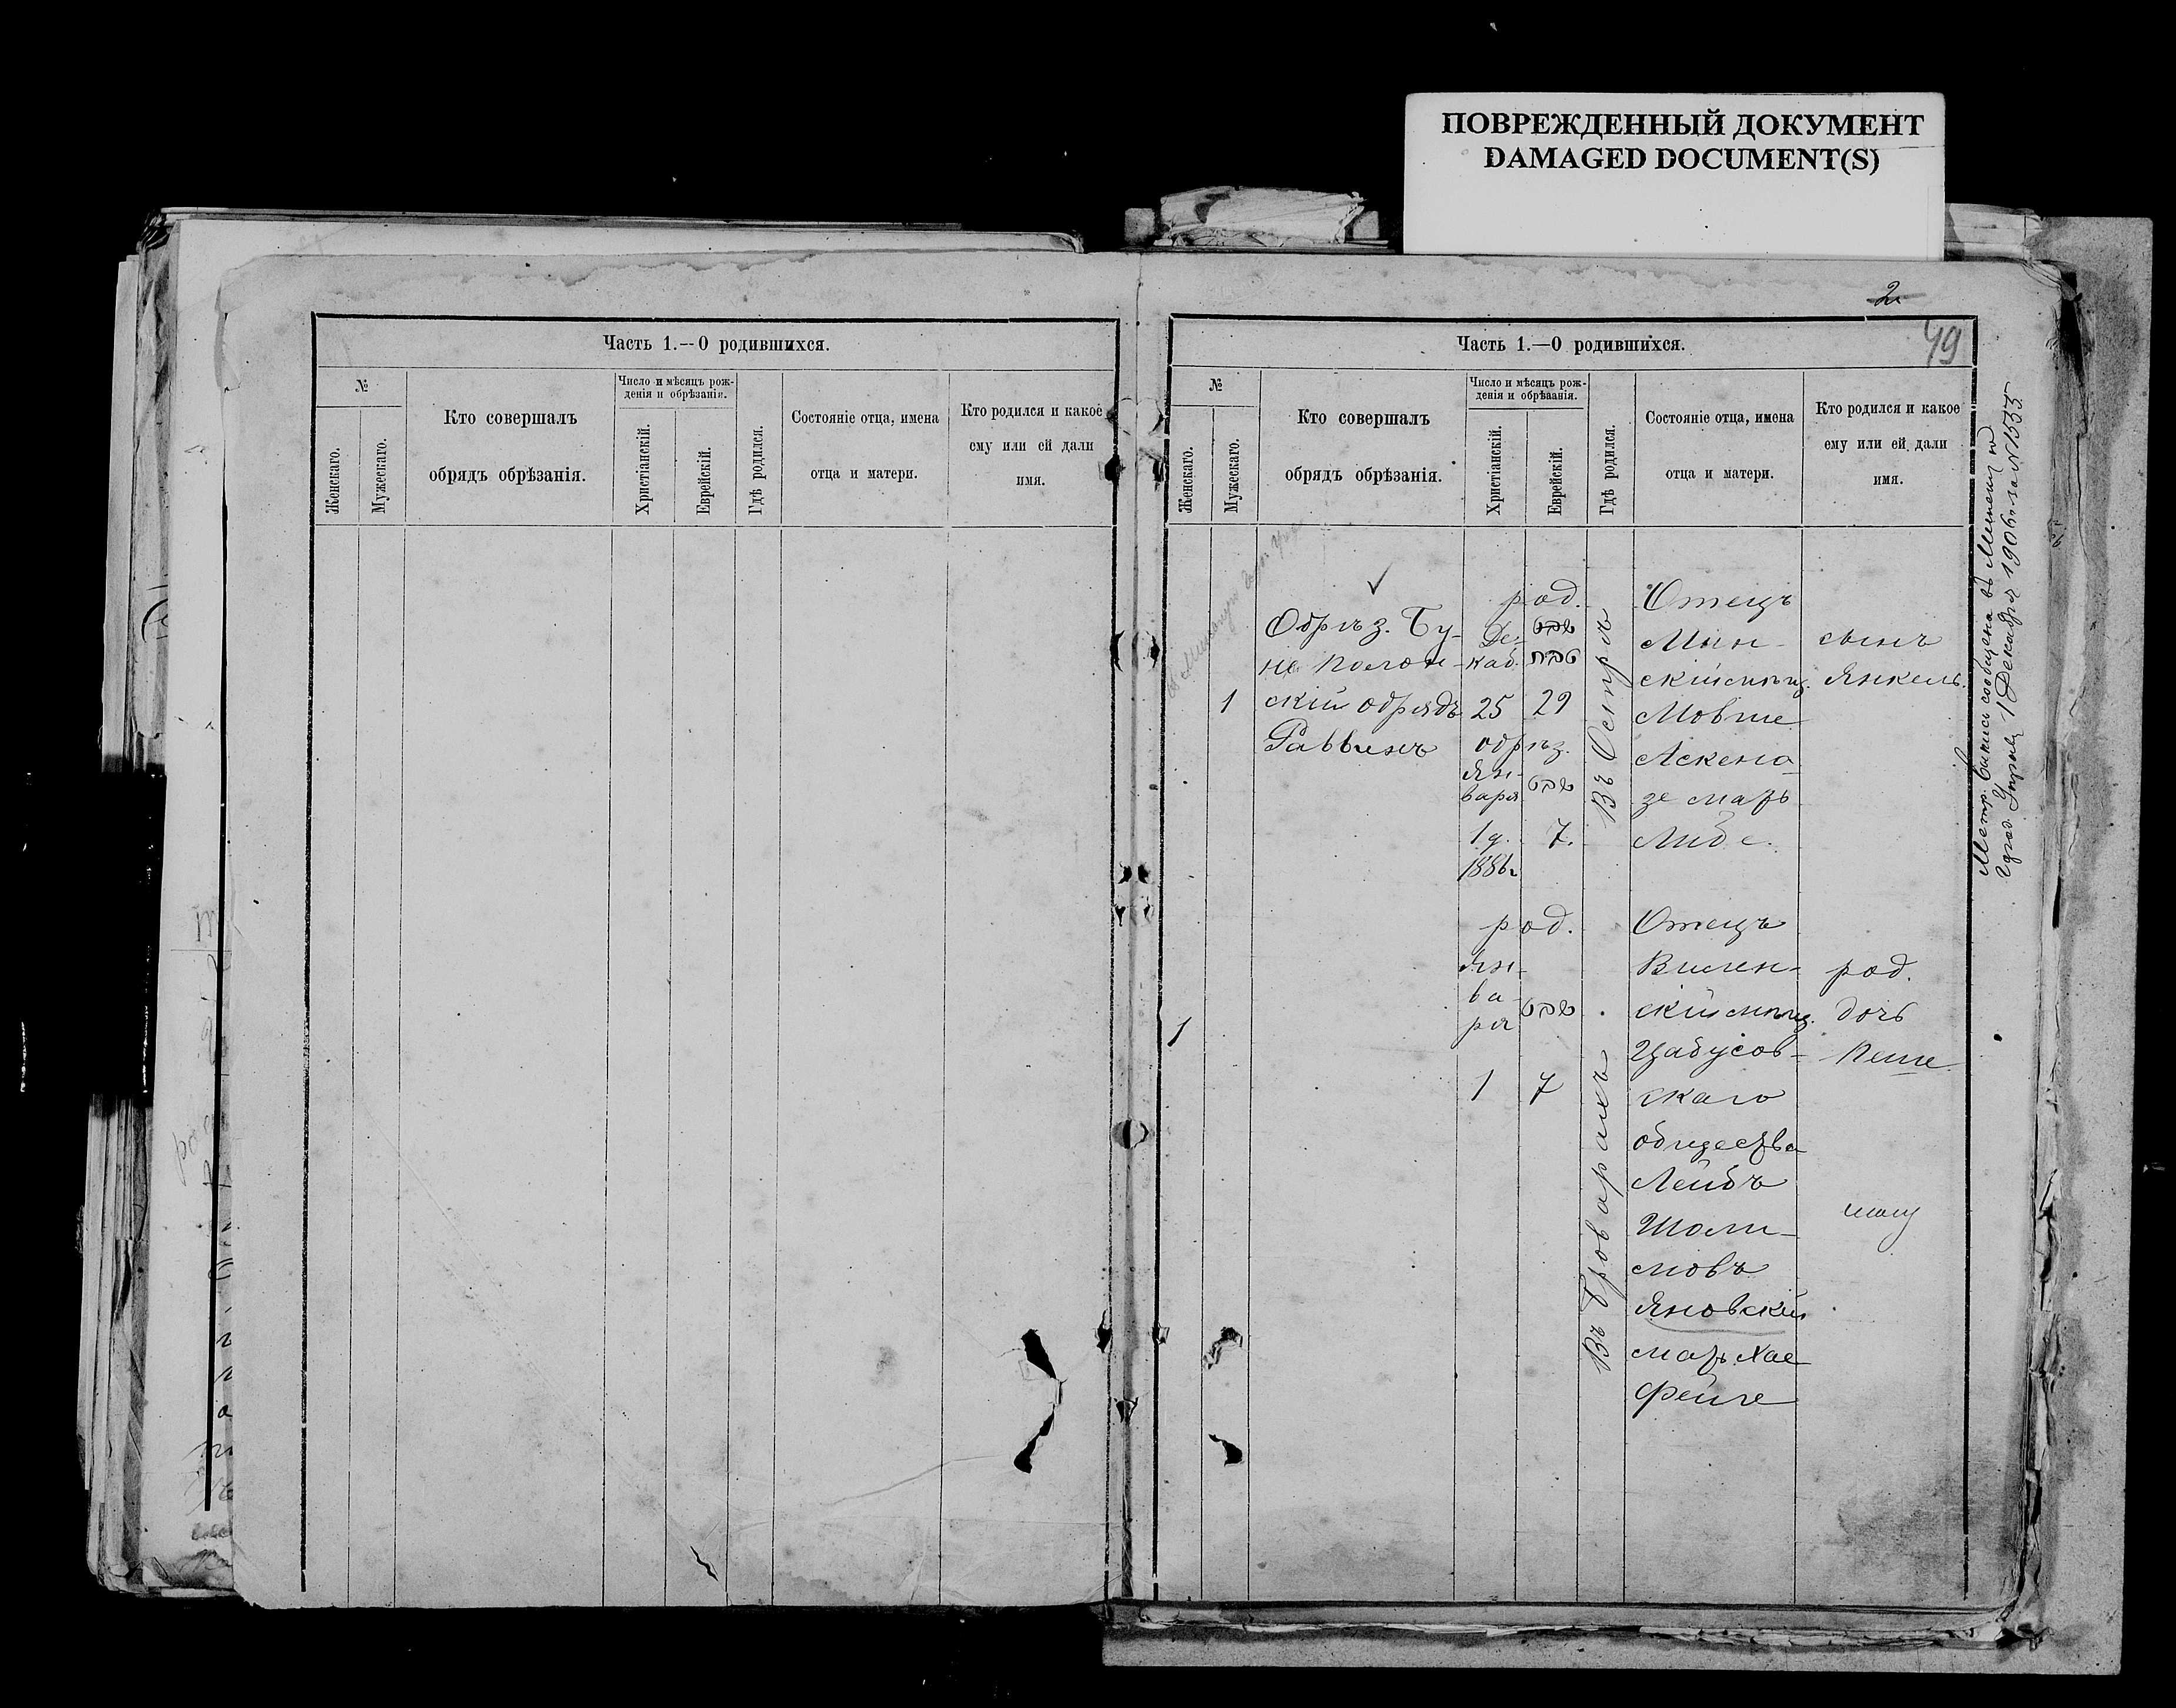 ПОВРЕЖДЕННЫЙ ДОКУМЕНТ
DAMAGED DOCUMENT(S)
Часть 1.—О родившихся.
№
Женскаго.
Мужескаго.
Кто совершалъ
обрядъ обрѣзанія.
Число и мѣсяцъ рож-
денія и обрѣзанія.
Христіанскій.
Еврейскій.
Гдѣ родился.
Состояніе отца, имена
отца и матери.
Кто родился и какое
ему или ей дали
имя.
2
49
Часть 1.—О родившихся.
№
Женскаго.
Мужескаго.
Кто совершалъ
обрядъ обрѣзанія.
Число и мѣсяцъ рож-
денія и обрѣзанія.
Христіанскій.
Еврейскій.
Гдѣ родился.
Состояніе отца, имена
отца и матери.
Кто родился и какое
ему или ей дали
имя.
1
Обрѣз. Бу-
не
скій обрядъ
Раввинъ
род.
Де-
каб.
25 29
обрѣз.
Ян-
варя
טבת
1 7.
1886г
Въ Остръ
Отецъ
Мин-
скій мѣщ.
Мовше
Аскена-
зе мать
Либе.
сынъ
Янкель.
1
род.
Ян-
ва-
ря
טבת
1 7
Въ Броварахъ
Отецъ
Вилен-
скій мѣщ.
скаго
общества
Лейбъ
Шоли-
мовъ
Яновскій
мать Хае
Фейге
род.
дочь
Пеше
Метр. выпись сообщена въ
1 Декабря 1906г. за № 1535.